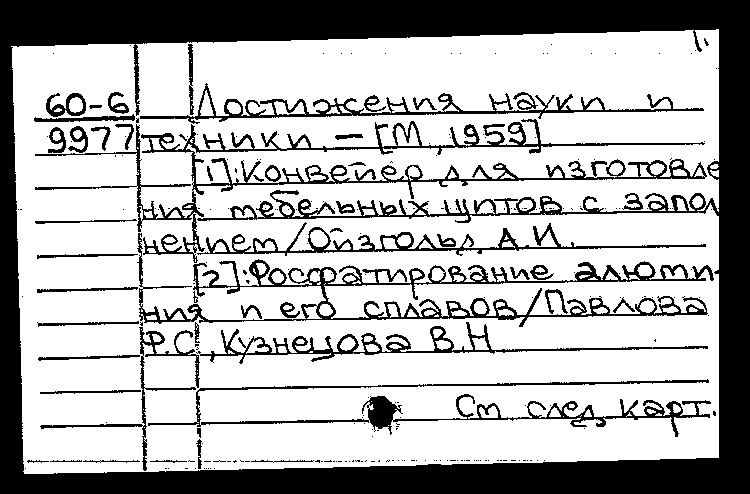 1.
60-6 Достижения науки и
9977 техники. – [М., 1959]
[1]: Конвейер для изготовле
ния мебельных щитов с запол
нением / Ойзгольд А.И.
[2]: Фосфатирование алюми-
ния и его сплавов / Павлова
Ф.С., Кузнецова В.Н
См след. карт.